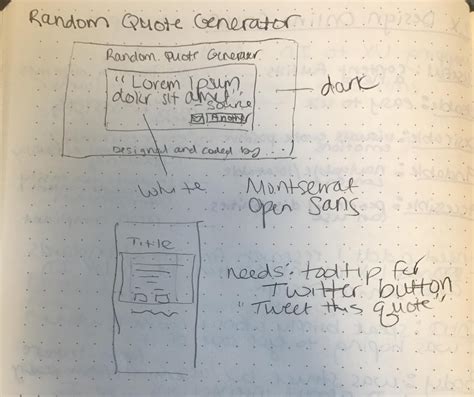 Random Quote Generator
Random Quote Generator
"Lorem Ipsum
dolor sit amet,"
source
Another
Designed and coded by...
dark
white
Montserrat
Open Sans
Title
needs: tooltip for
Twitter button
"Tweet this quote"